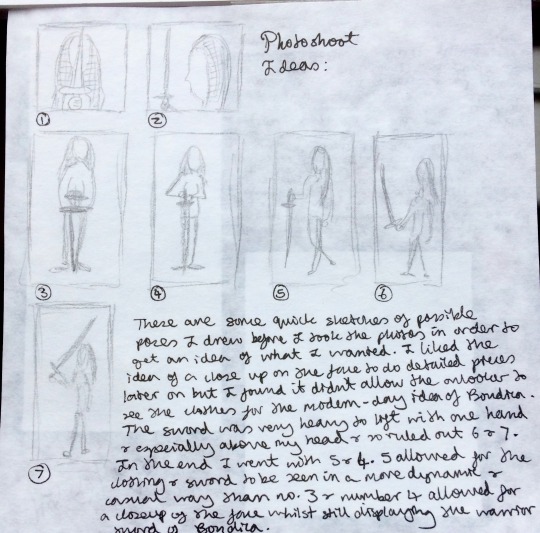 Photoshoot
Ideas:
1
2
3
4
5
6
7
These are some quick sketches of possible
poses I drew before I took the photos in order to
get an idea of what I wanted. I liked the
idea of a close up on the face to do detailed pieces
later on but I found it didn't allow the onlooker to
see the clothes for the modern-day idea of Boudica.
The sword was very heavy to lift with one hand
& especially above my head & so ruled out 6 & 7.
In the end I went with 5 & 4. 5 allowed for the
clothing & sword to be seen in a more dynamic &
casual way than no. 3 & number 4 allowed for
a closeup of the face whilst still displaying the warrior
sword of Boudica.